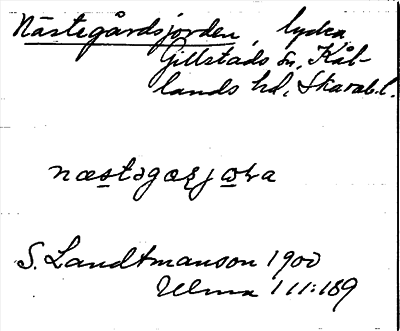 Nästegårdsjorden, lycka
Gillstads sn, Kål-
lands hd, Skarab.l.
næstəgæʂjɷɽa
S. Landtmanson 1900
Ulma 111:189